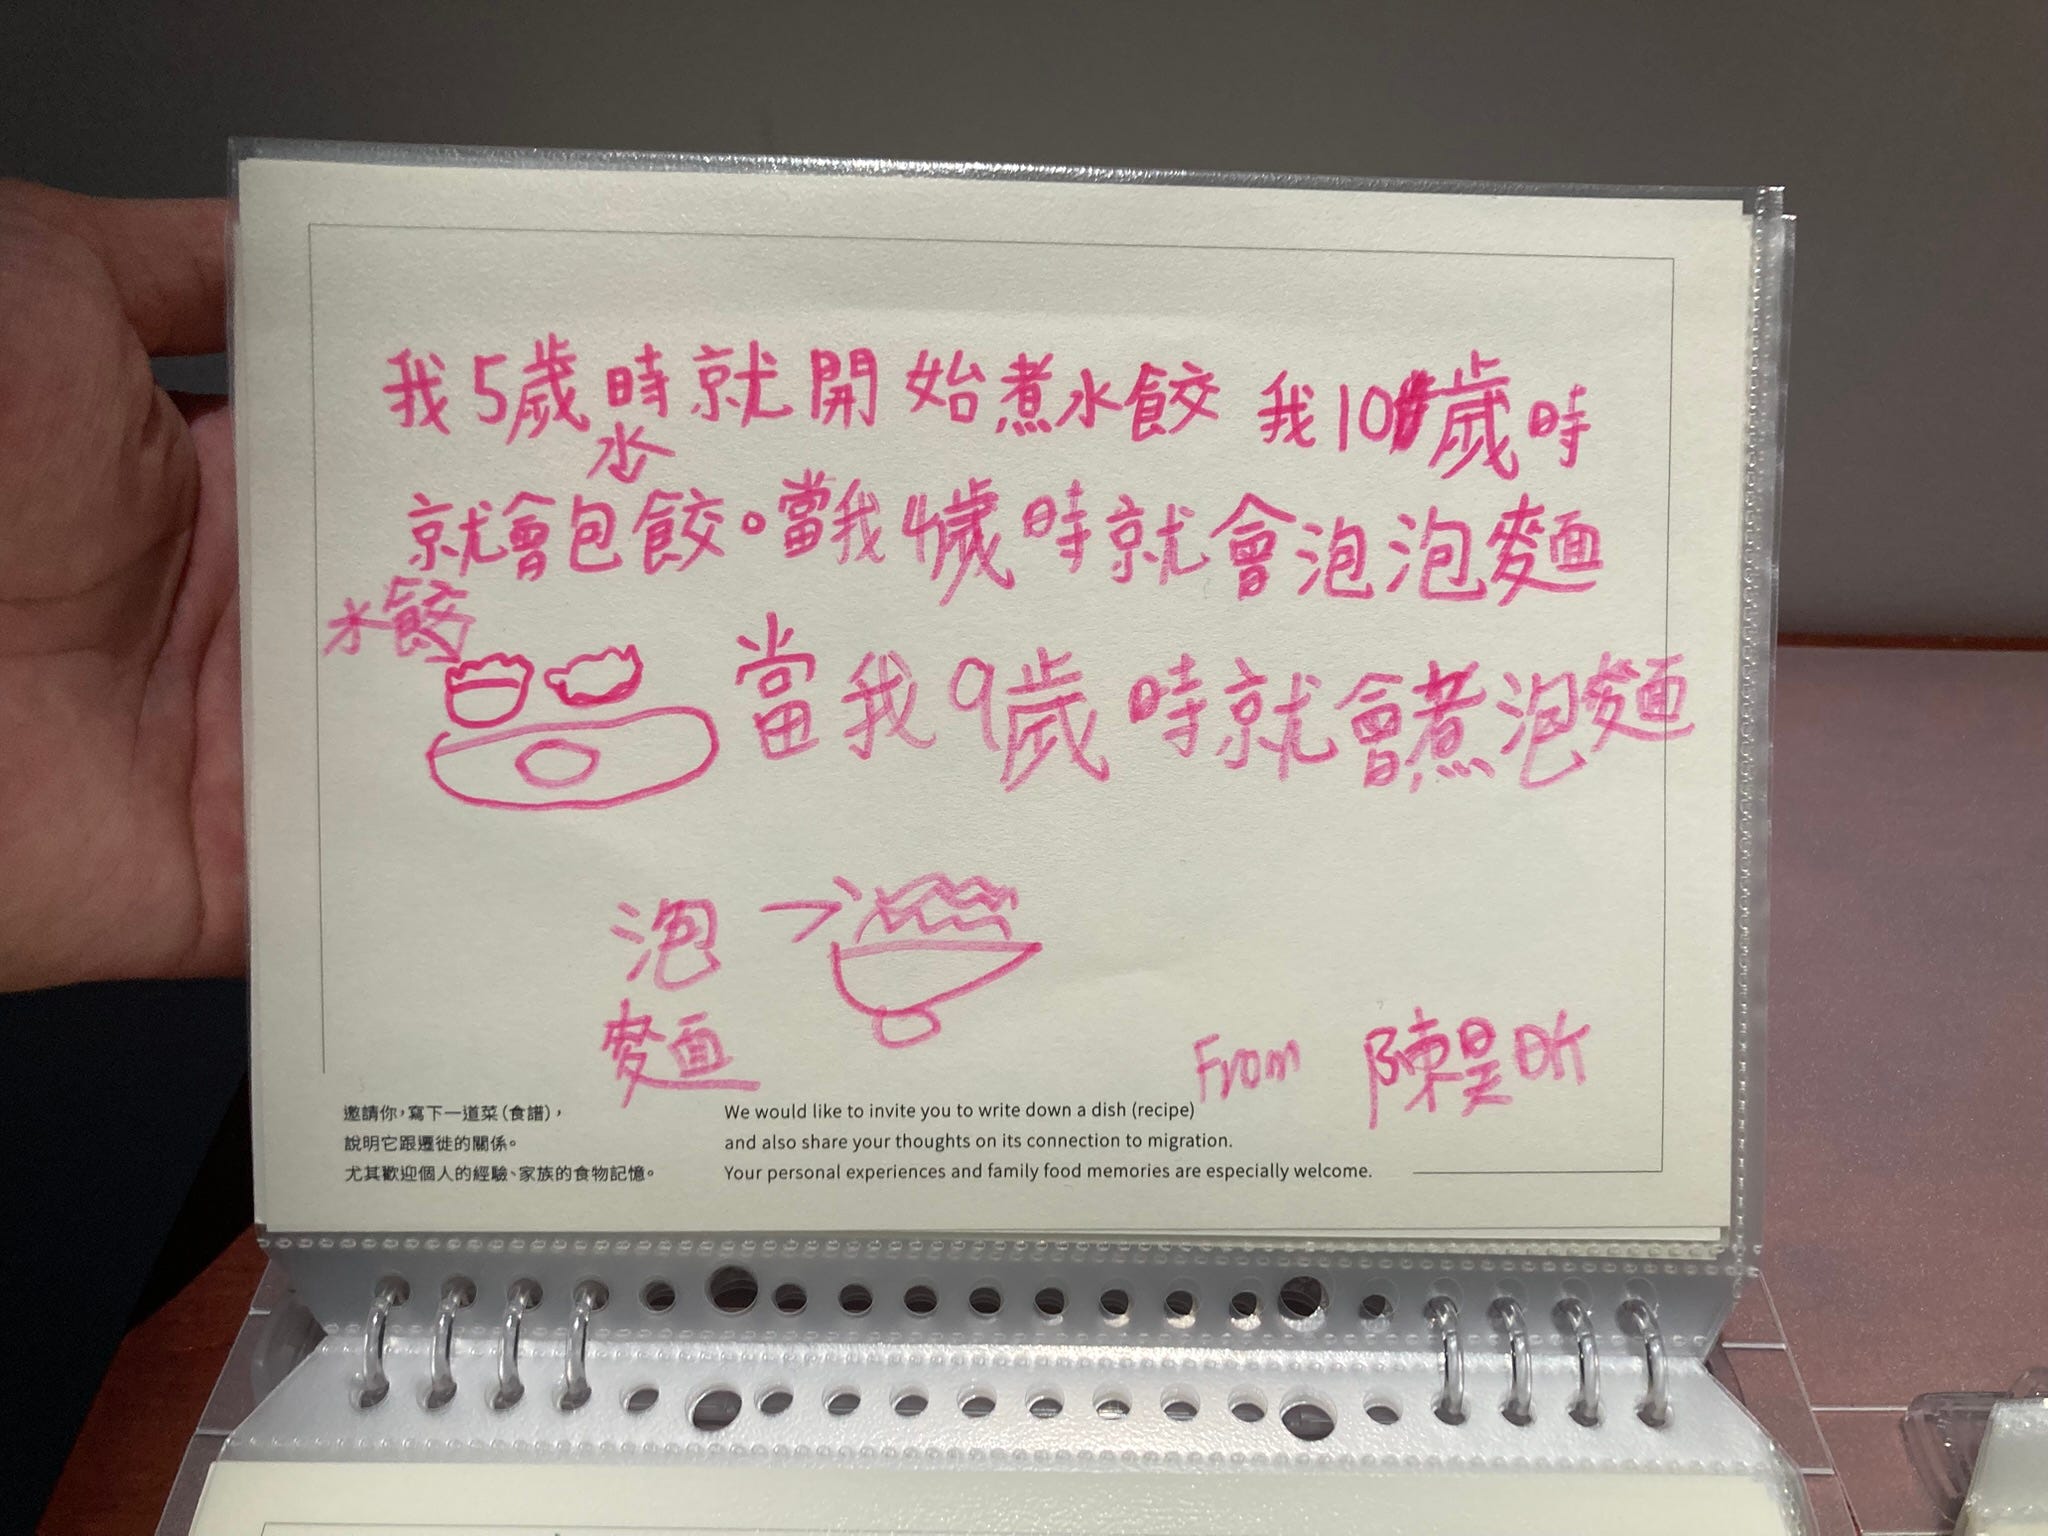 我5歲時就開始煮水餃 我10歲時
就會包水餃。當我4歲時就會泡泡麵
水餃
當我9歲時就會煮泡麵
泡
麵
From 陳昊
邀請你,寫下一道菜(食譜),
說明它跟遷徙的關係。
尤其歡迎個人的經驗、家族的食物記憶。
We would like to invite you to write down a dish (recipe)
and also share your thoughts on its connection to migration.
Your personal experiences and family food memories are especially welcome.